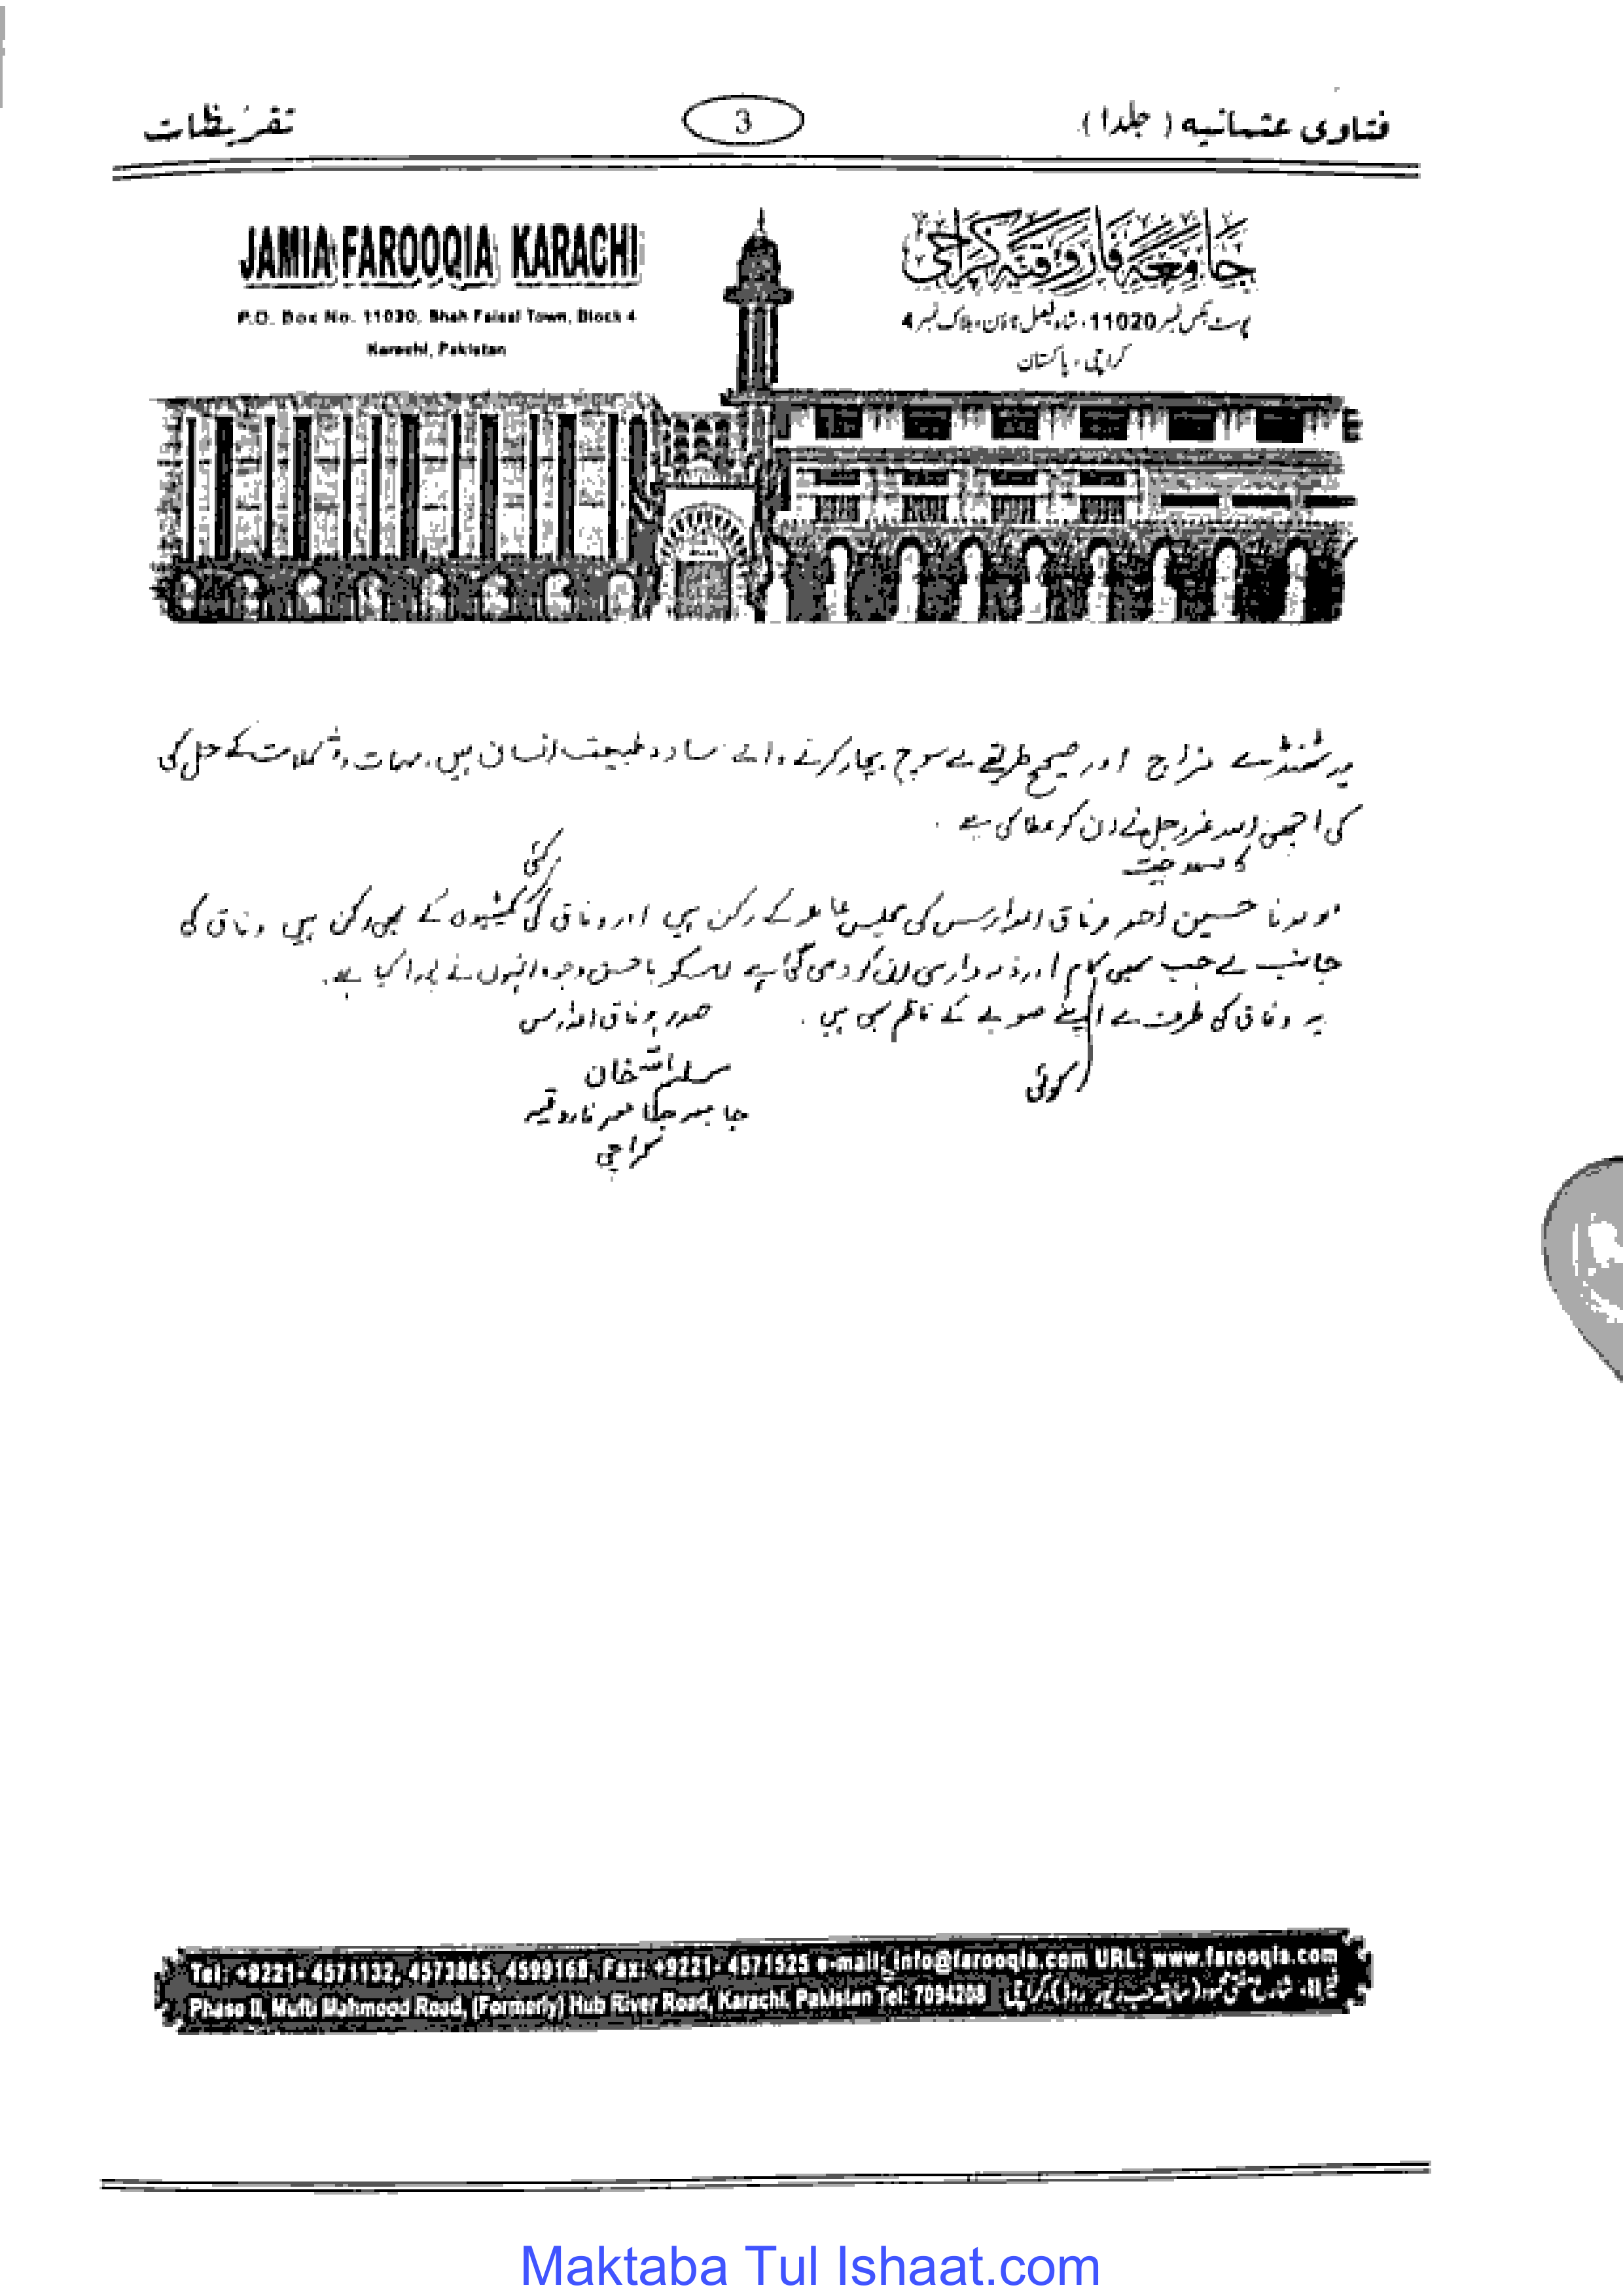 فتاویٰ عثمانیہ (جلد ۱)
3
تقریظات
JAMIA FAROOQIA KARACHI
P.O. Box No. 11020, Shah Faisal Town, Block 4
Karachi, Pakistan
جامعہ فاروقیہ کراچی
پوسٹ بکس نمبر 11020، شاہ فیصل ٹاؤن، بلاک نمبر 4
کراچی، پاکستان
ٹھنڈے مزاج اور صحیح طریقے سے سوچ بچار کرنے والے سادہ طبیعت انسان ہیں، مہمات و مشکلات کے حل کی
کی اچھی اللہ عزوجل نے ان کو عطا کی ہے۔
کئی
مولانا حسین احمد وفاق المدارس کی مجلس عاملہ کے رکن ہیں اور وفاق کی کمیٹیوں کے بھی رکن ہیں وفاق کی
جانب سے جب بھی کام اور ذمہ داری ان کو دی گئی ہے اس کو باحسن وجوہ انہوں نے پورا کیا ہے۔
یہ وفاق کی طرف سے اپنے صوبے کے ناظم بھی ہیں۔
کوئی
صدر وفاق المدارس
سلیم اللہ خان
جامعہ فاروقیہ
کراچی
Tel: +9221- 4571132, 4573865, 4599168, Fax: +9221- 4571525 e-mail: info@farooqia.com URL: www.farooqia.com
Phase II, Mufti Mahmood Road, (Formerly) Hub River Road, Karachi, Pakistan Tel: 7094208
Maktaba Tul Ishaat.com